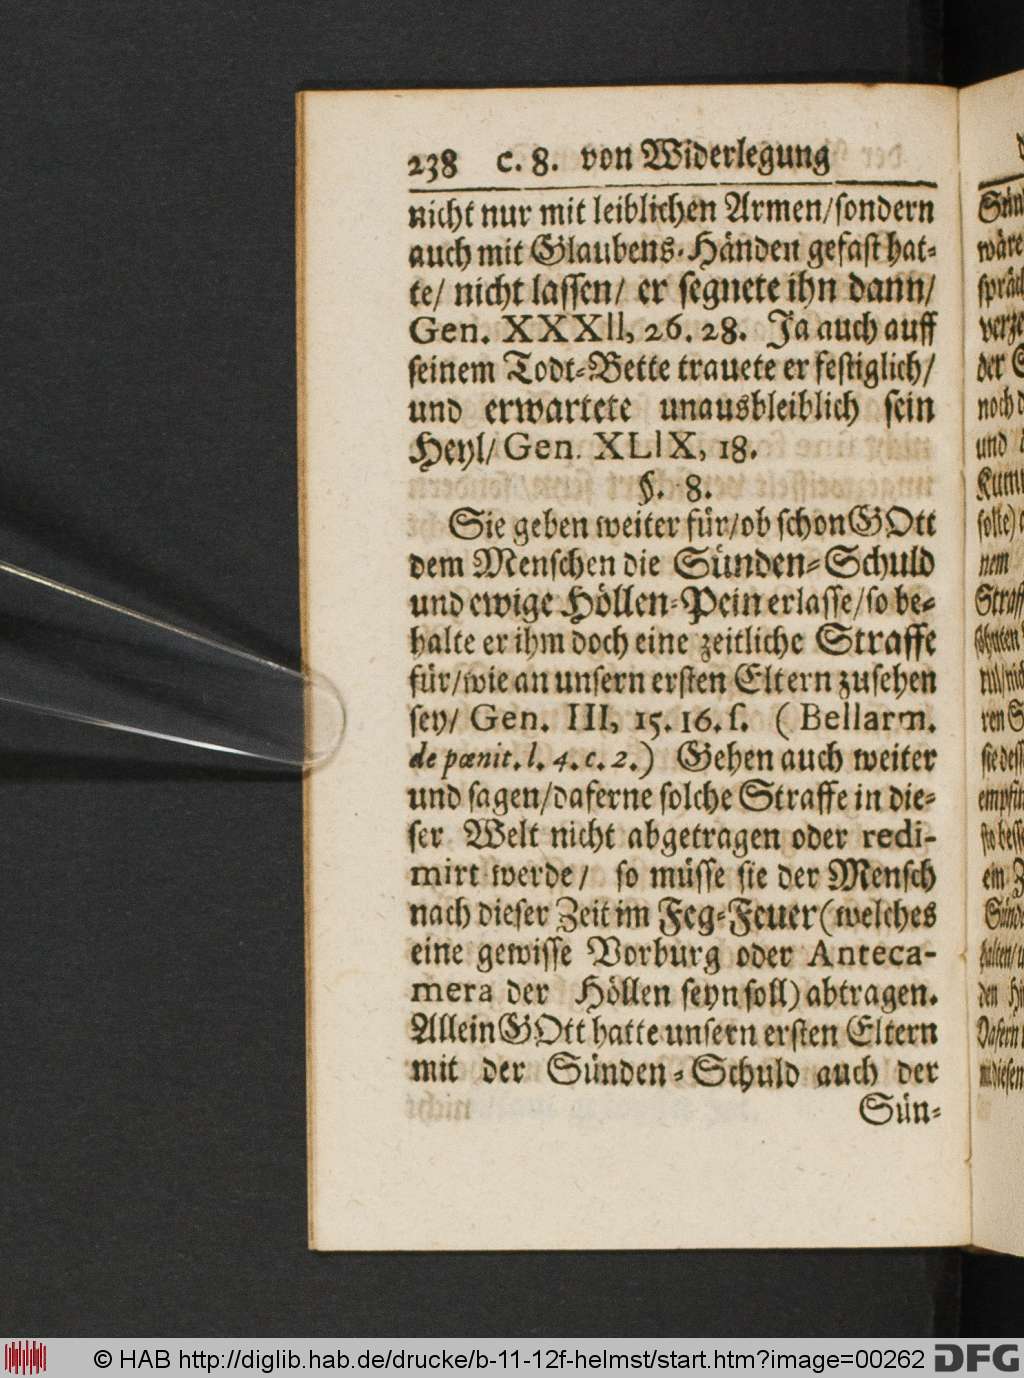 238 c. 8. von Widerlegung
nicht nur mit leiblichen Armen/sondern
auch mit Glaubens-Händen gefast hat-
te/ nicht lassen/ er segnete ihn dann/
Gen. XXXII, 26. 28. Ja auch auff
seinem Todt-Bette trauete er festiglich/
und erwartete unausbleiblich sein
Heyl/ Gen. XLIX, 18.
§. 8.
Sie geben weiter für/ob schon GOtt
dem Menschen die Sünden-Schuld
und ewige Höllen-Pein erlasse/so be-
halte er ihm doch eine zeitliche Straffe
für/wie an unsern ersten Eltern zusehen
sey/ Gen. III, 15. 16. s. (Bellarm.
de pœnit. l. 4. c. 2.) Gehen auch weiter
und sagen/daferne solche Straffe in die-
ser Welt nicht abgetragen oder redi-
mirt werde/ so müsse sie der Mensch
nach dieser Zeit im Feg-Feuer (welches
eine gewisse Vorburg oder Anteca-
mera der Höllen seyn soll) abtragen.
Allein GOtt hatte unsern ersten Eltern
mit der Sünden-Schuld auch der
Sün-
wäre
der
und
nem
© HAB http://diglib.hab.de/drucke/b-11-12f-helmst/start.htm?image=00262 DFG